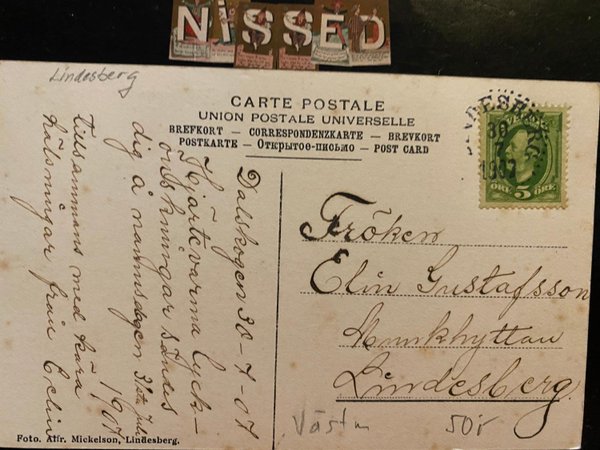 NiSSED
Lindesberg
CARTE POSTALE
UNION POSTALE UNIVERSELLE
BREFKORT – CORRESPONDENZKARTE – BREVKORT
POSTKARTE – Открытое-письмо – POST CARD
LINDESBERG
30
7
1907
SVERIGE
ÖRE 5 ÖRE
Dalskogen 30-7-07
Hjärtevarma lyck-
önskningar sändes
dig å namnsdagen 31sta Juli
1907
tillsammans med kära
hälsningar från Evelin
Fröken
Elin Gustafsson
Munkhyttan
Lindesberg.
Västm
50:-
Foto. Alfr. Mickelson, Lindesberg.